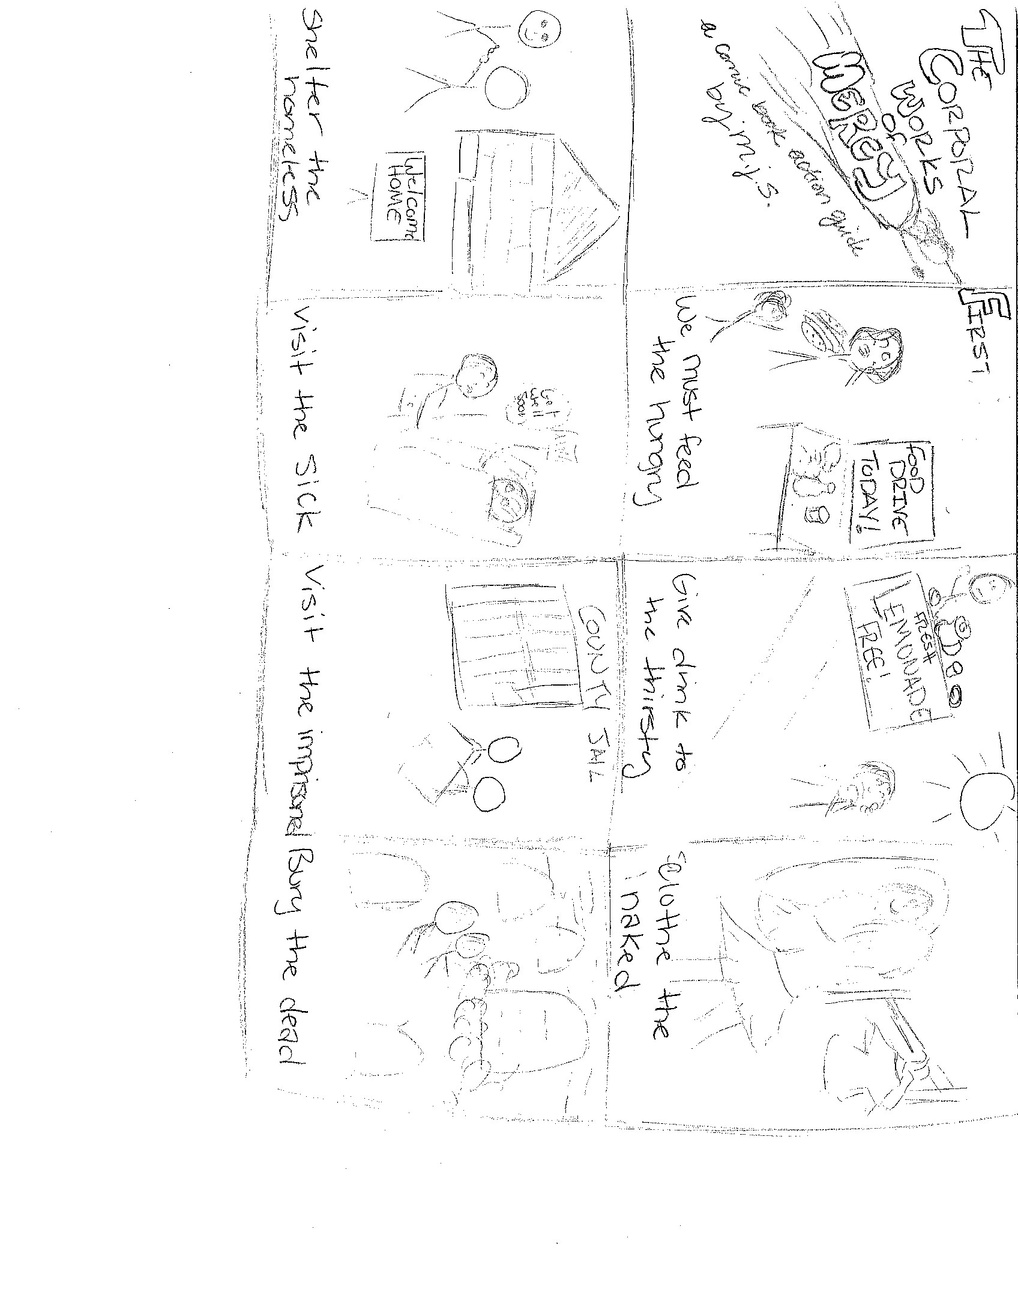 THE
CORPORAL
WORKS
OF
MERCY
a comic book action guide
by m.j.s.
FIRST,
FOOD
DRIVE
TODAY!
We must feed
the hungry
FRESH
LEMONADE
FREE!
Give drink to
the thirsty
clothe the
naked.
Welcome
HOME
Shelter the
homeless
Get
Well
Soon
Visit the Sick
COUNTY JAIL
Visit the imprisoned
Bury the dead